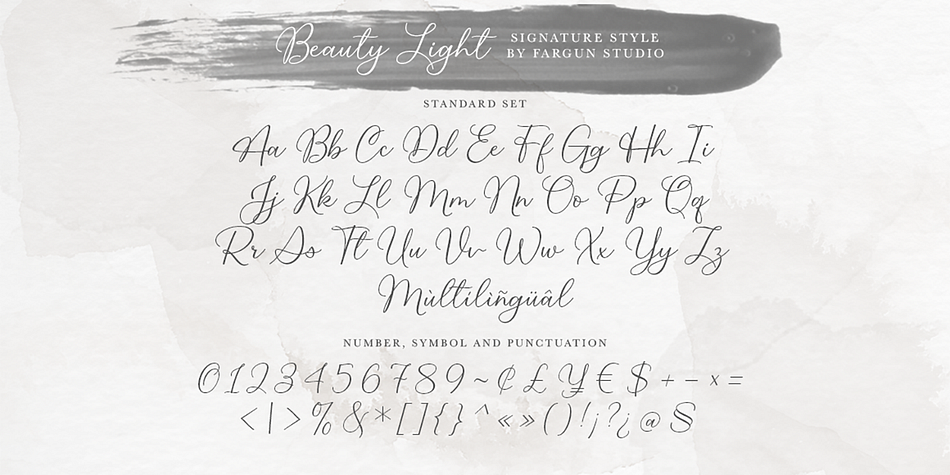 Beauty Light SIGNATURE STYLE
BY FARGUN STUDIO
STANDARD SET
Aa Bb Cc Dd Ee Ff Gg Hh Ii
Jj Kk Ll Mm Nn Oo Pp Qq
Rr Ss Tt Uu Vv Ww Xx Yy Zz
Mùltilìñgüâl
NUMBER, SYMBOL AND PUNCTUATION
0123456789~¢£¥€$+-×=
<|>%&*[]{}^«»()!¡?¿@§